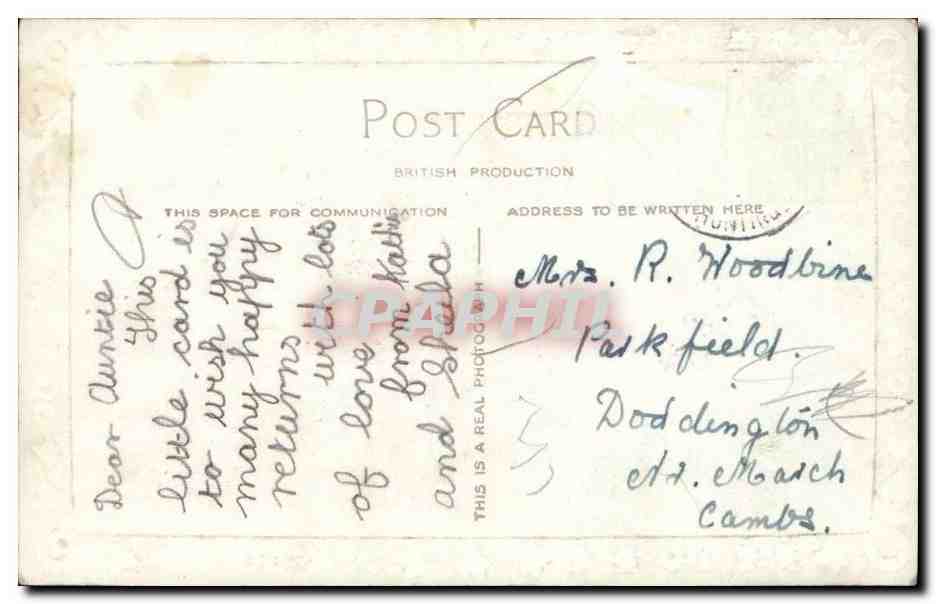 POST CARD
BRITISH PRODUCTION
THIS SPACE FOR COMMUNICATION
ADDRESS TO BE WRITTEN HERE
Dear Auntie
This
little card is
to wish you
many happy
returns
with lots
of love
from
and Sheila
THIS IS A REAL PHOTOGRAPH
HUNTING
Mrs. R. Woodbine
Parkfield.
Doddington
Nr. March
Cambs.
CPAPHIL